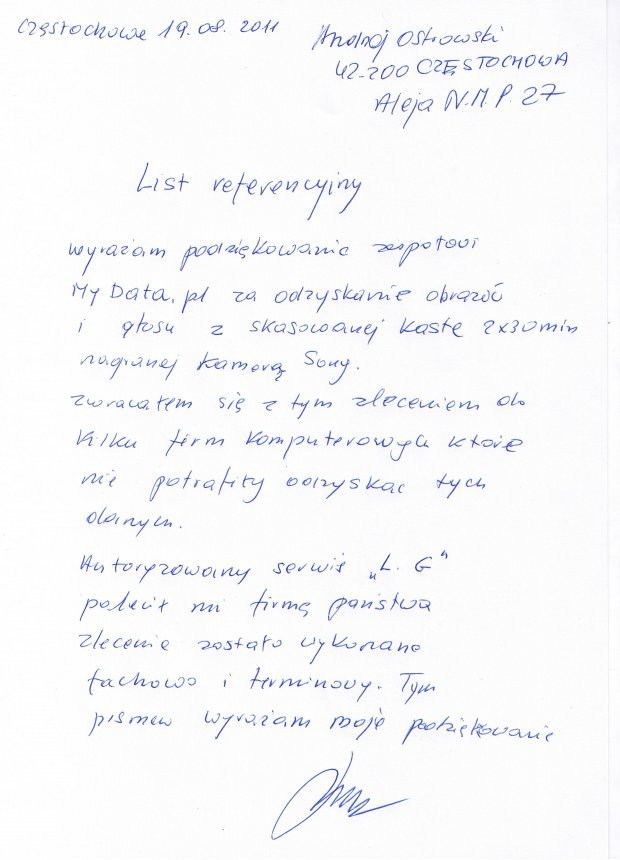 Częstochowa 19.08.2011
Andrzej Ostrowski
42-200 CZĘSTOCHOWA
Aleja N.M.P. 27
List referencyjny
wyrażam podziękowanie zespołowi
My Data.pl za odzyskanie obrazów
i głosu z skasowanej kaste 2x30min
nagranej kamerą Sony.
zwracałem się z tym zleceniem do
kilku firm komputerowych które
nie potrafiły odzyskać tych
danych.
Autoryzowany serwis „L.G"
polecił mi firmę państwa
zlecenie zostało wykonane
fachowo i terminowy. Tym
pismem wyrażam moje podziękowanie